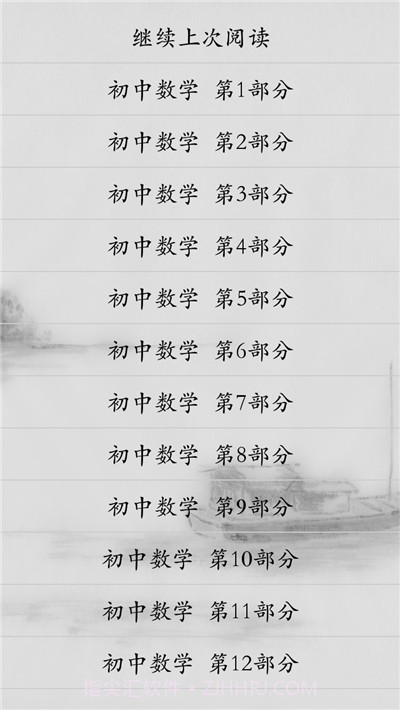 继续上次阅读
初中数学 第1部分
初中数学 第2部分
初中数学 第3部分
初中数学 第4部分
初中数学 第5部分
初中数学 第6部分
初中数学 第7部分
初中数学 第8部分
初中数学 第9部分
初中数学 第10部分
初中数学 第11部分
初中数学 第12部分
指尖汇软件·ZJHHRJ.COM